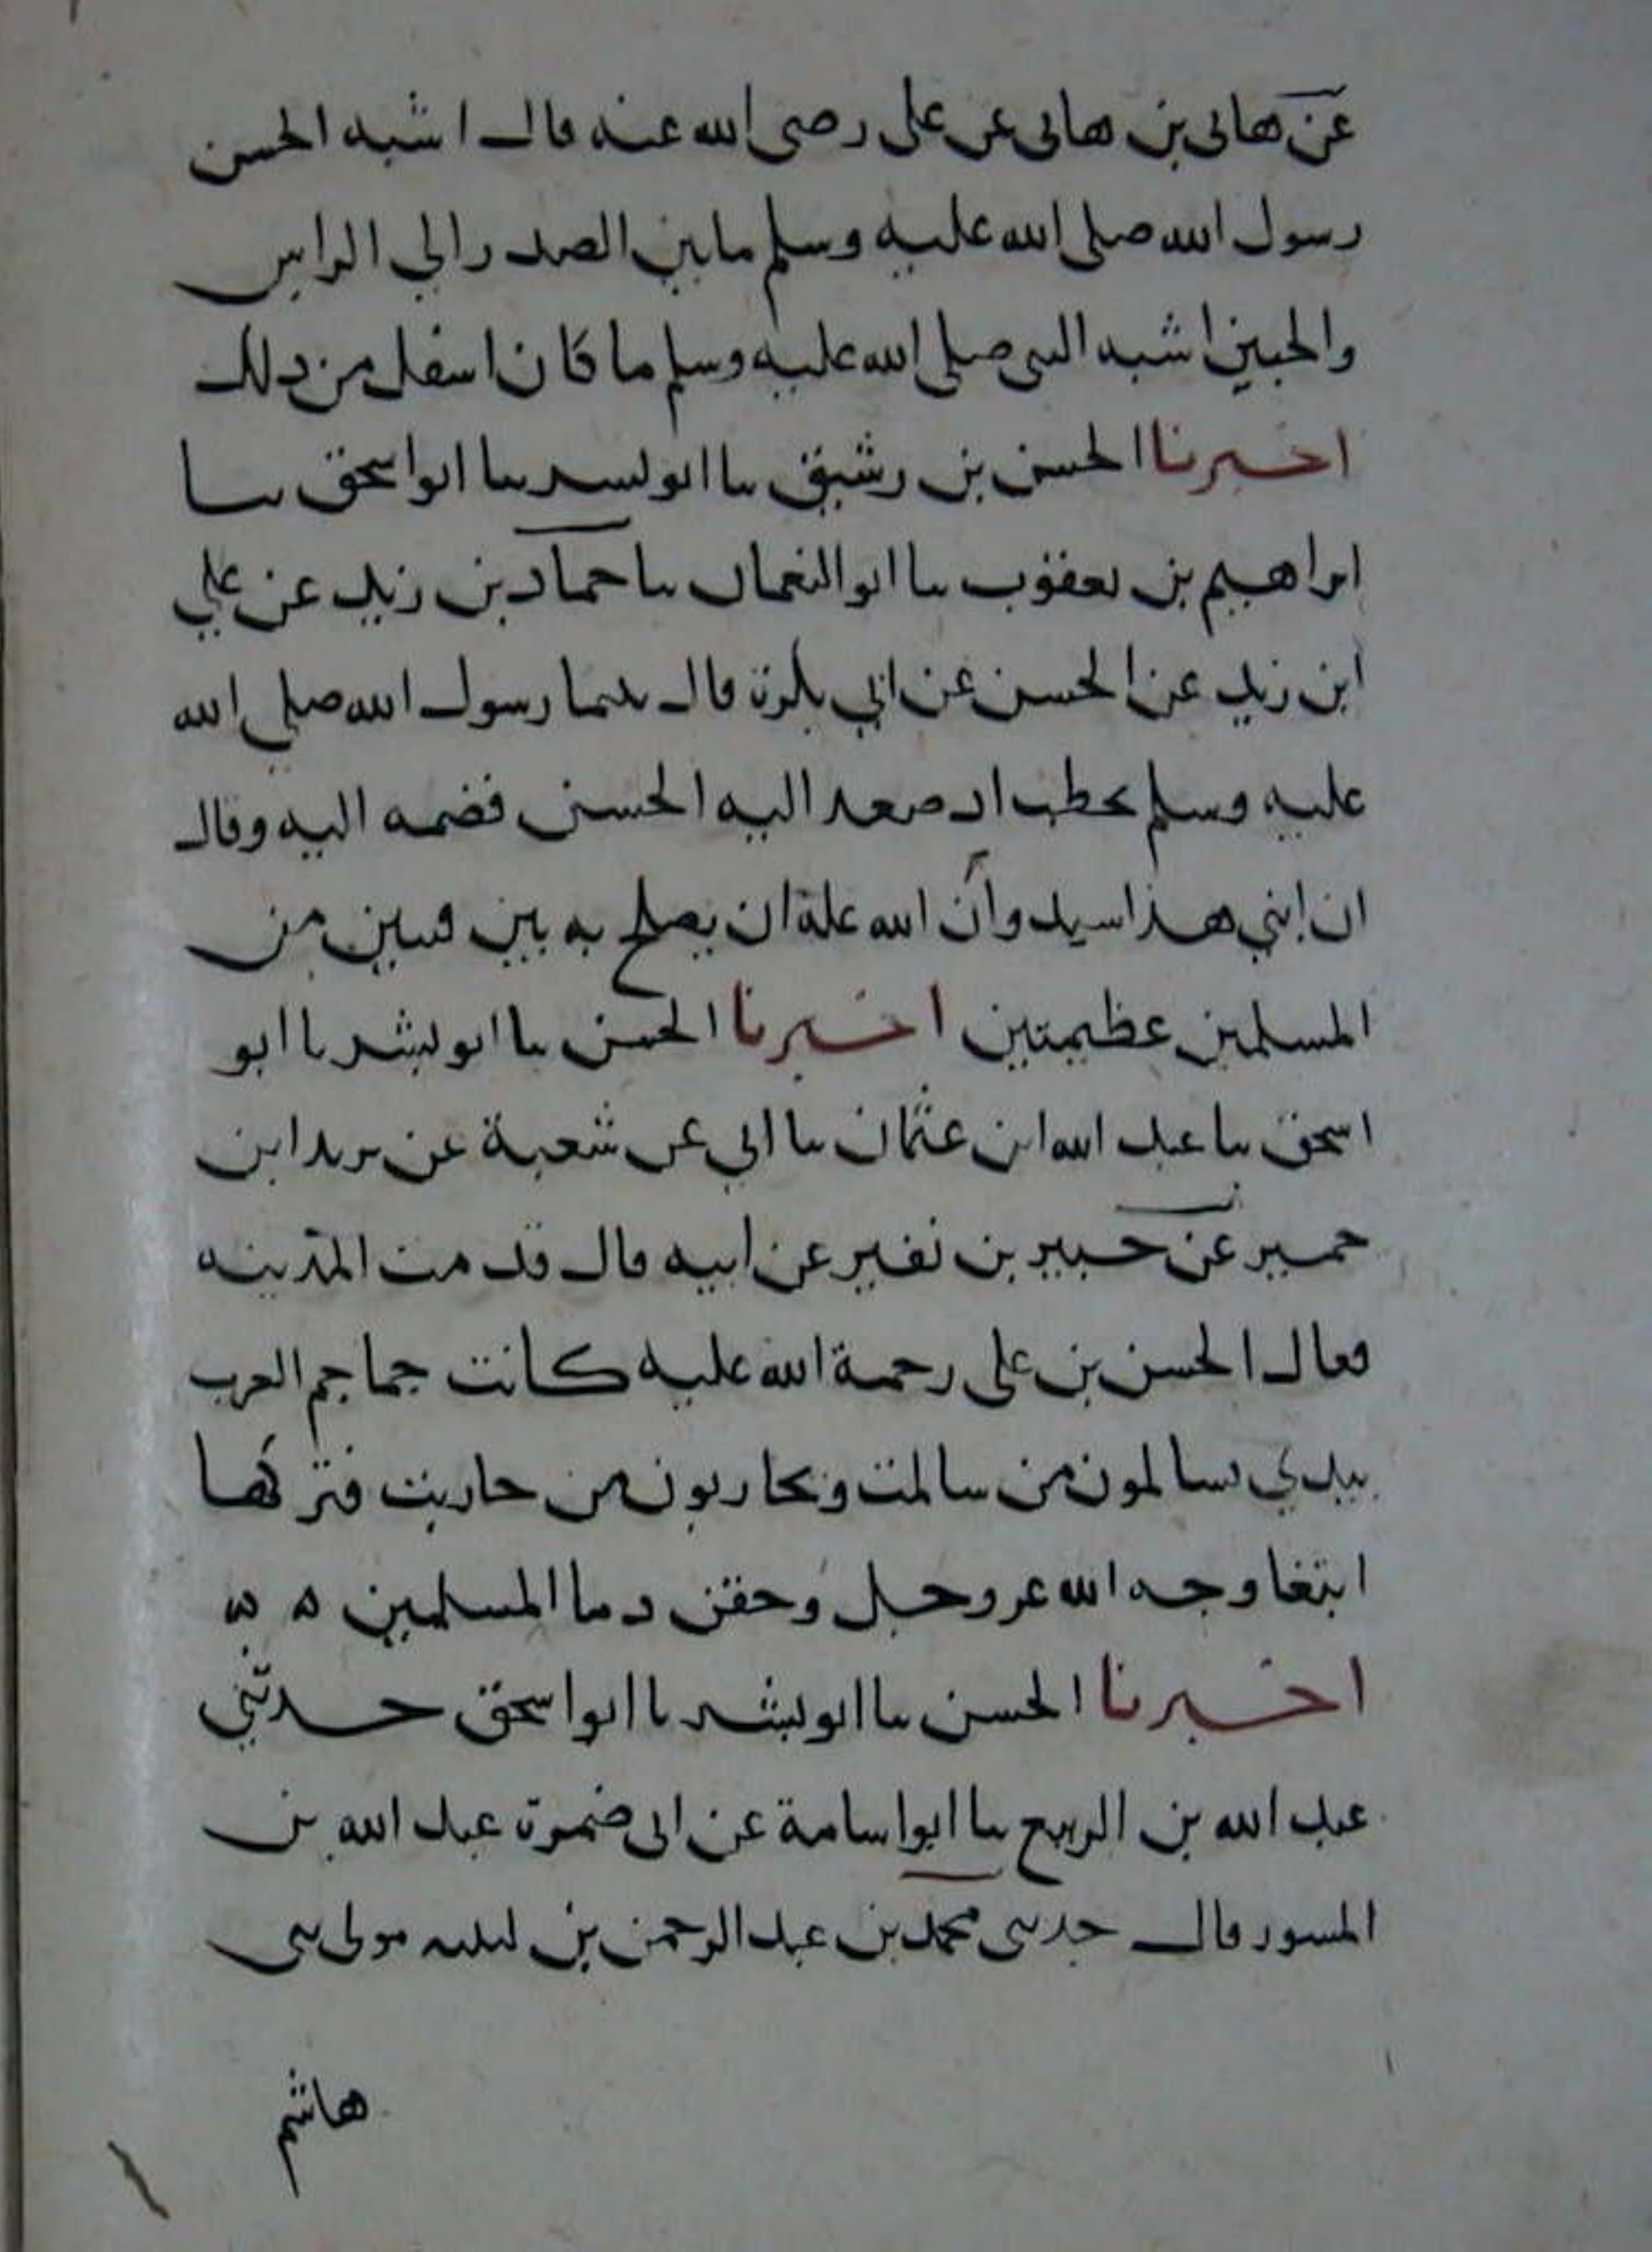 عن هانى بن هانى عن على رضى الله عنه قال اشبه الحسن
رسول الله صلى الله عليه وسلم مابين الصدر الي الراس
والحسين اشبه النبى صلى الله عليه وسلم ما كان اسفل من ذلك
اخبرنا الحسن بن رشيق نا ابو بشر نا ابو اسحق نا
ابراهيم بن يعقوب نا ابو النعمان نا حماد بن زيد عن علي
ابن زيد عن الحسن عن ابي بكرة قال بينما رسول الله صلى الله
عليه وسلم يخطب اذ صعد اليه الحسن فضمه اليه وقال
ان ابني هذا سيد وأن الله علة ان يصلح به بين فئتين من
المسلمين عظيمتين اخبرنا الحسن نا ابو بشر نا ابو
اسحق نا عبد الله ابن عثمان نا ابي عن شعبة عن يزيد ابن
خمير عن جبير بن نفير عن ابيه قال قدمت المدينه
فقال الحسن بن على رحمة الله عليه كانت جماجم العرب
بيدي يسالمون من سالمت ويحاربون من حاربت فتركها
ابتغا وجه الله عز وجل وحقن دما المسلمين ه ه
اخبرنا الحسن نا ابو بشر نا ابو اسحق حدثني
عبد الله بن الربيع نا ابو اسامة عن ابى ضمرة عبد الله بن
المسور قال حدثنى محمد بن عبد الرحمن بن لبيبه مولى بنى
هاشم